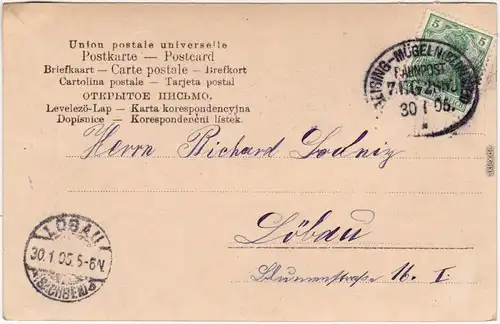 Union postale universelle
Postkarte — Postcard
Briefkaart — Carte postale — Brefkort
Cartolina postale — Tarjeta postal
ОТКРЫТОЕ ПИСЬМО.
Levelező-Lap — Karta korespondencyjna
Dopisnice — Korespondenční lístek.
5 5
BAHNPOST
30 1 05.
Herrn Richard
Löbau
Blumenstraße 16. I.
LÖBAU
30.1 05. 5-6N.